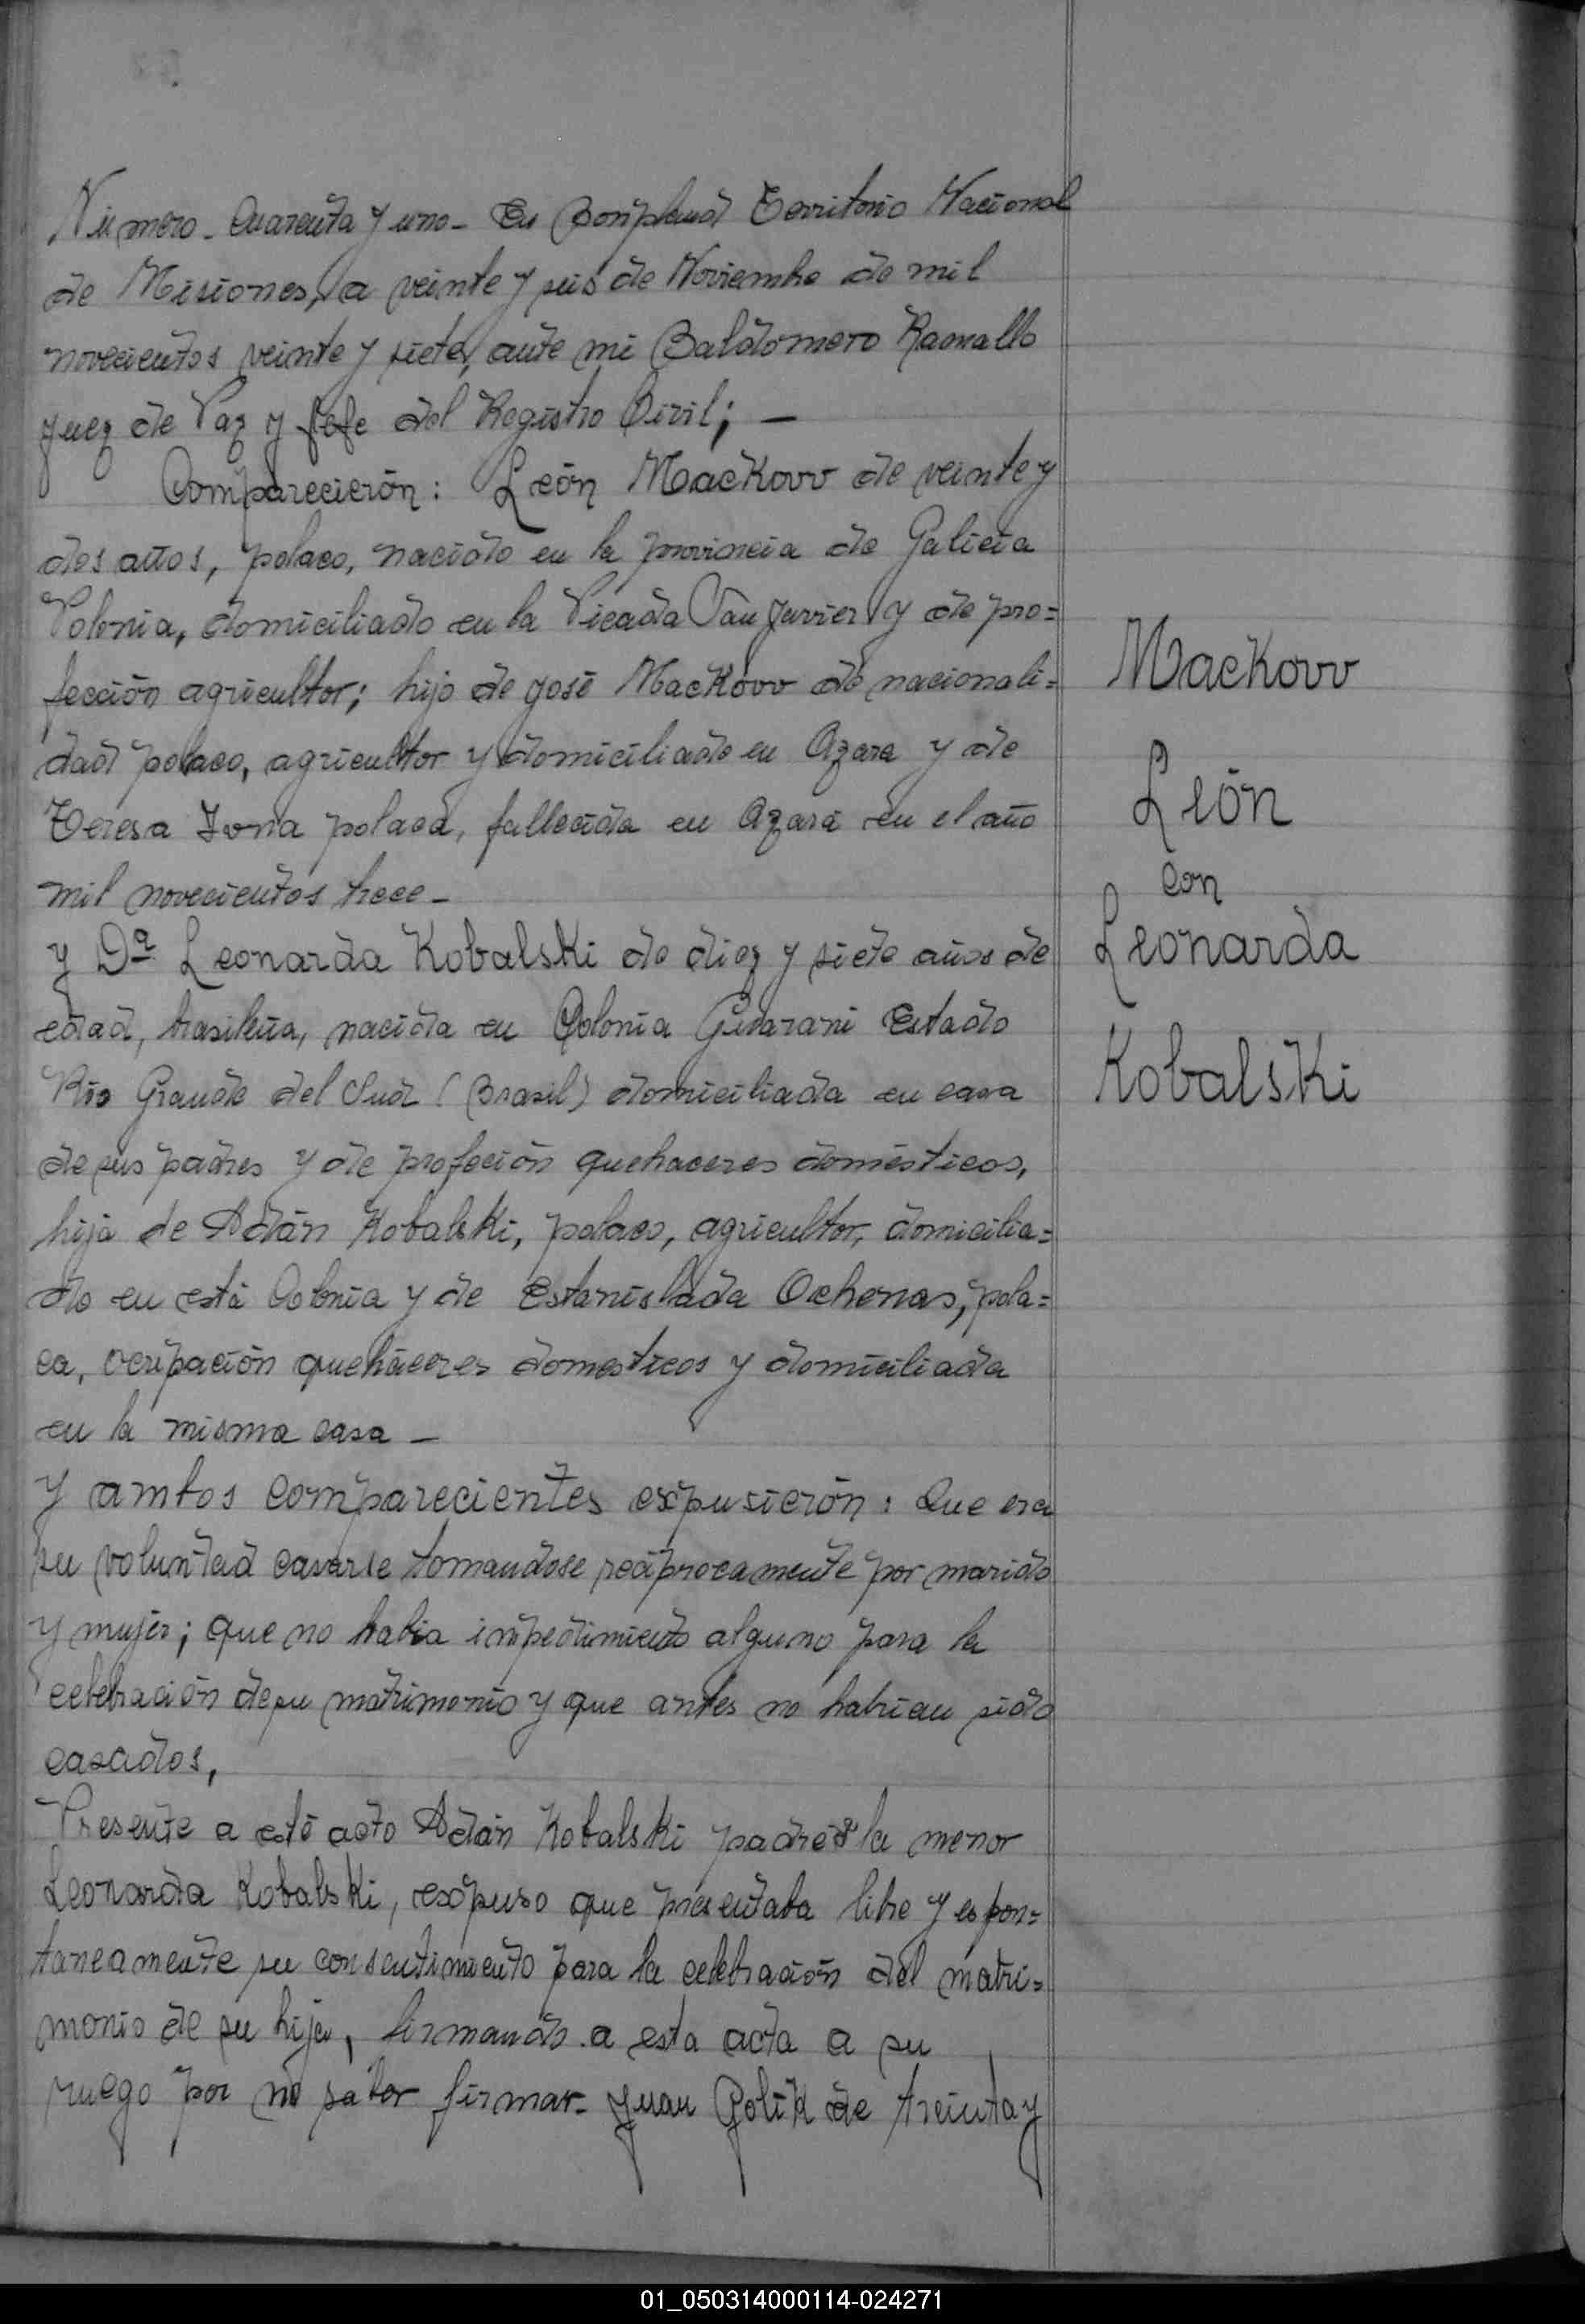 Número. Cuarenta y uno - En Bonpland Territorio Nacional
de Misiones, a veinte y seis de Noviembre de mil
novecientos veinte y siete, ante mi Baldomero Ramallo
Juez de Paz y Jefe del Registro Civil; —
Comparecierón: León Mackovv de veinte y
dos años, polaco, nacido en la provincia de Galicia
Polonia, domiciliado en la Picada San Javier y de pro=
fección agricultor; hijo de José Mackovv de nacionali=
dad polaco, agricultor y domiciliado en Azara y de
Teresa polaca, fallecida en Azara en el año
mil novecientos trece -
y Dª Leonarda Kobalski de diez y siete años de
edad, brasileña, nacida en Colonia Guarani Estado
Río Grande del Sud (Brasil) domiciliada en casa
de sus padres y de profeción quehaceres domésticos,
hija de Adán Kobalski, polaco, agricultor, domicilia=
do en está Colonia y de Estanislada Ochenas, pola=
ca, ocupación quehaceres domesticos y domiciliada
en la misma casa —
Y ambos comparecientes expusierón: Que era
su voluntad casarse tomandose reciprocamente por marido
y mujer; que no habia impedimiento alguno para la
celebración de su matrimonio y que antes no habrian sido
casados,
Presente a esté acto Adán Kobalski padre de la menor
Leonarda Kobalski, expuso que presentaba libre y espon=
taneamente su consentimiento para la celebración del matri=
monio de su hija, firmando a esta acta a su
ruego por no saber firmar. Juan Golik de treinta y
Mackovv
León
con
Leonarda
Kobalski
01_050314000114-024271